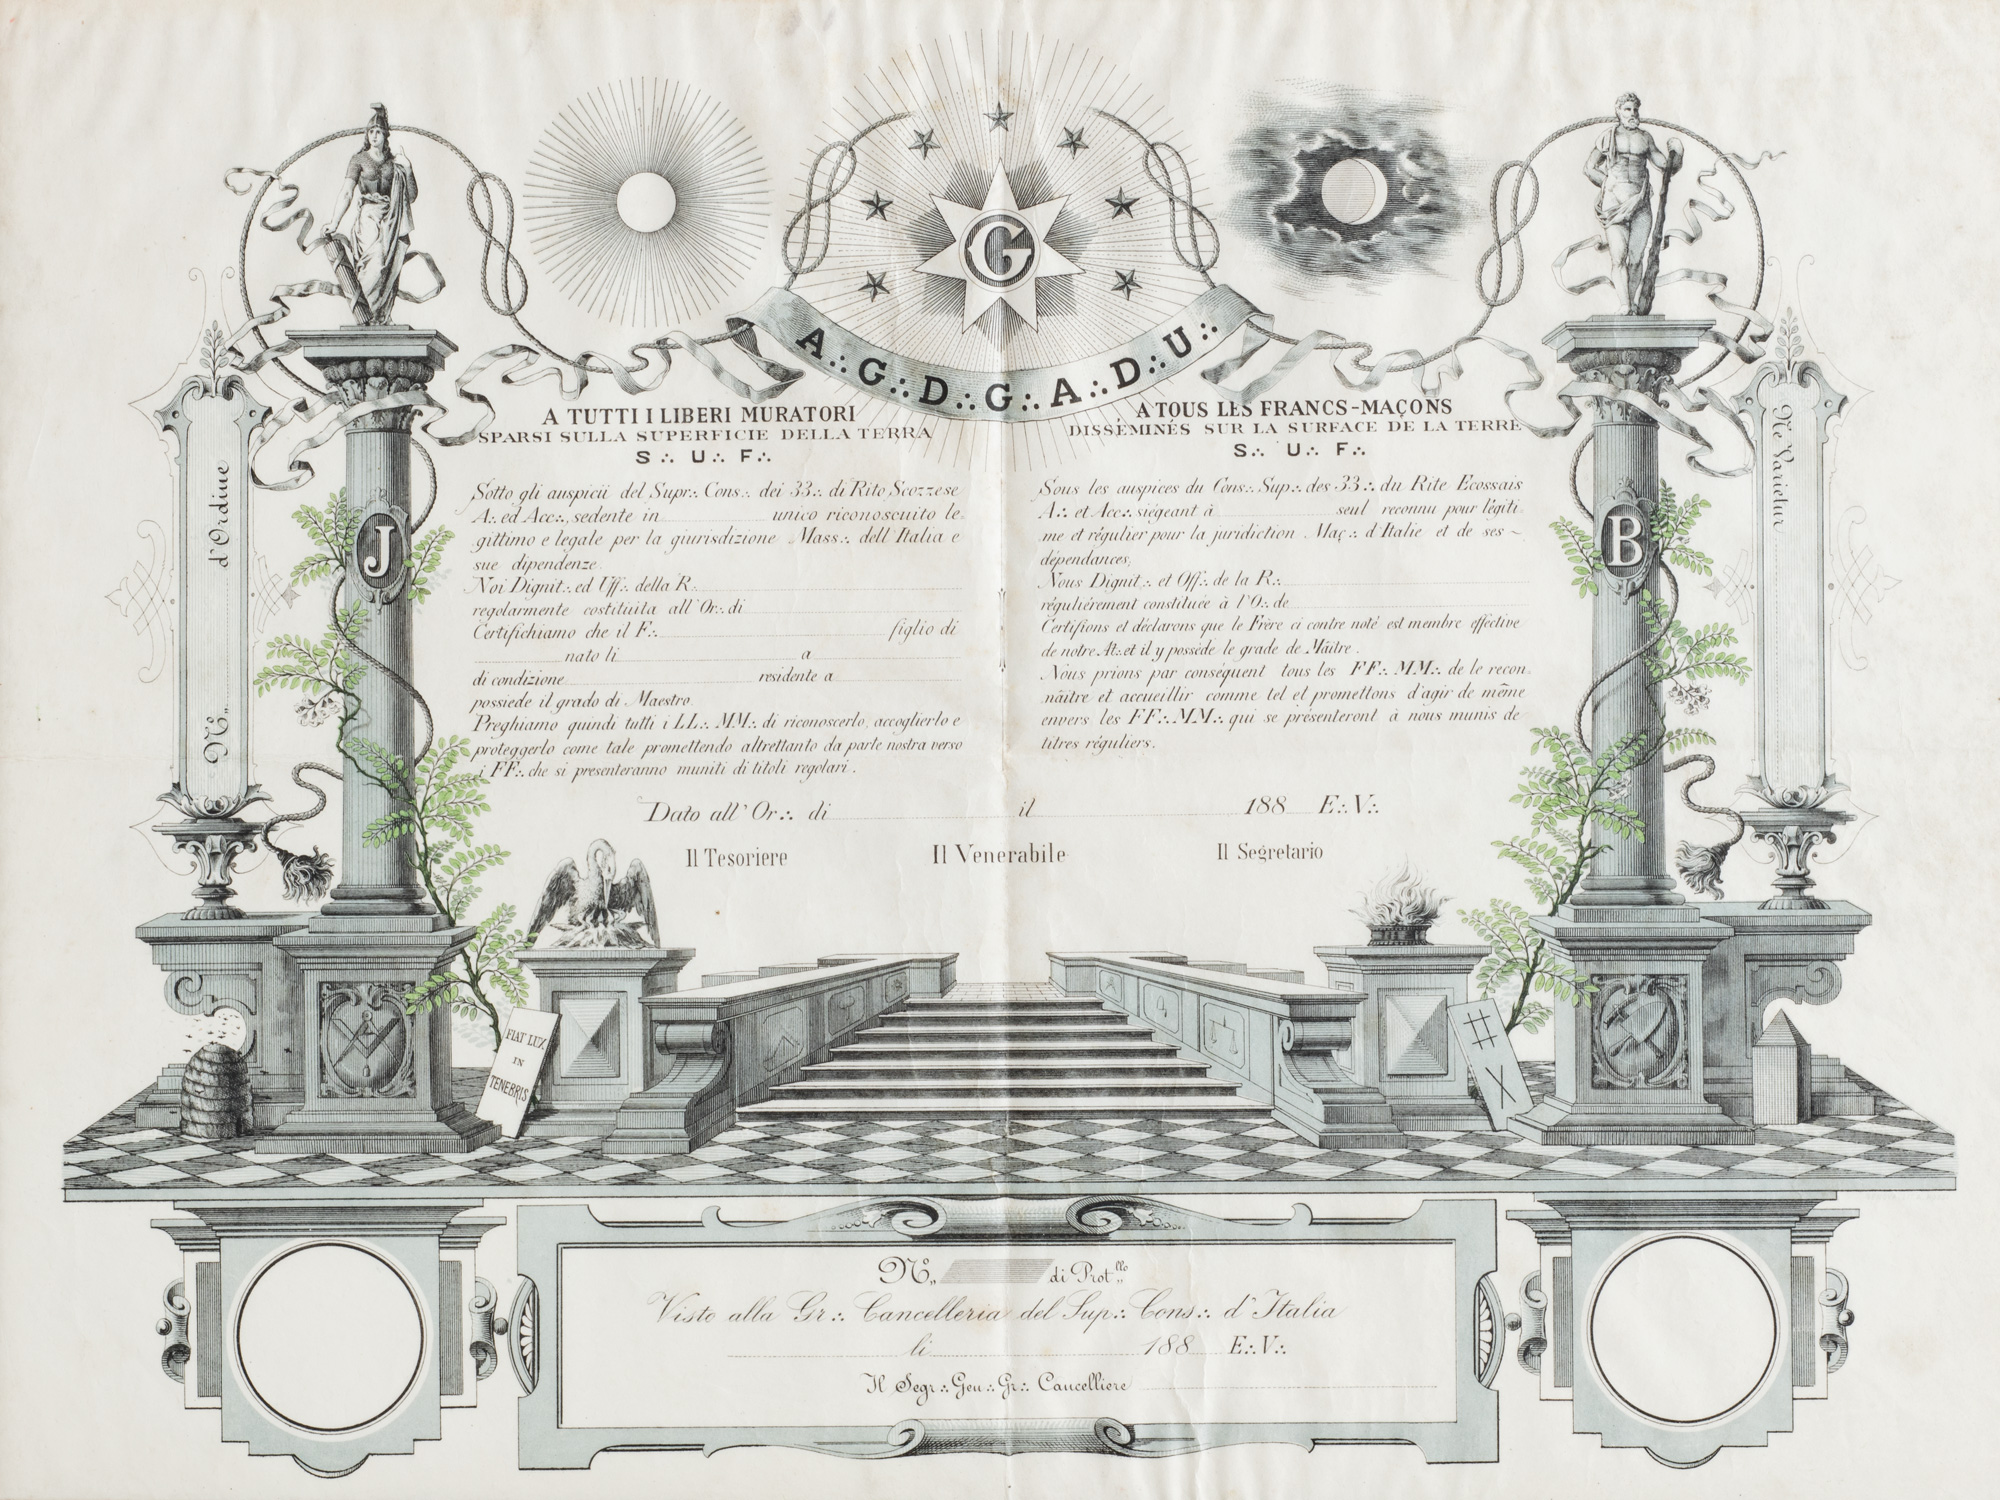 G
A∴G∴D∴G∴A∴D∴U∴
A TUTTI I LIBERI MURATORI
SPARSI SULLA SUPERFICIE DELLA TERRA
S∴ U∴ F∴
Sotto gli auspicii del Supr∴ Cons∴ dei 33∴ di Rito Scozzese
A∴ ed Acc∴, sedente in unico riconosciuto le=
gittimo e legale per la giurisdizione Mass∴ dell'Italia e
sue dipendenze.
Noi Dignit∴ ed Uff∴ della R∴
regolarmente costituita all'Or∴ di
Certifichiamo che il F∴ figlio di
nato li a
di condizione residente a
possiede il grado di Maestro.
Preghiamo quindi tutti i LL∴ MM∴ di riconoscerlo, accoglierlo e
proteggerlo come tale promettendo altrettanto da parte nostra verso
i FF∴ che si presenteranno muniti di titoli regolari.
A TOUS LES FRANCS-MAÇONS
DISSÉMINÉS SUR LA SURFACE DE LA TERRE
S∴ U∴ F∴
Sous les auspices du Cons∴ Sup∴ des 33∴ du Rite Ecossais
A∴ et Acc∴ siégeant à seul reconnu pour légiti=
me et régulier pour la juridiction Maç∴ d'Italie et de ses ~
dépendances,
Nous Dignit∴ et Off∴ de la R∴
réguliérement constituée à l'O∴ de
Certifions et déclarons que le Frère ci contre noté est membre effective
de notre At∴ et il y possède le grade de Mâitre.
Nous prions par conséquent tous les FF∴ MM∴ de le recon=
nâitre et accueillir comme tel et promettons d'agir de même
envers les FF∴ MM∴ qui se présenteront à nous munis de
titres réguliers.
Dato all'Or∴ di il 188 E∴ V∴
Il Tesoriere Il Venerabile Il Segretario
Nº d'Ordine
Ne Varietur
J
B
FIAT LUX
IN
TENEBRIS
#
X
Nº di Prot.llo
Visto alla Gr∴ Cancelleria del Sup∴ Cons∴ d'Italia
li 188 E∴ V∴
Il Segr∴ Gen∴ Gr∴ Cancelliere